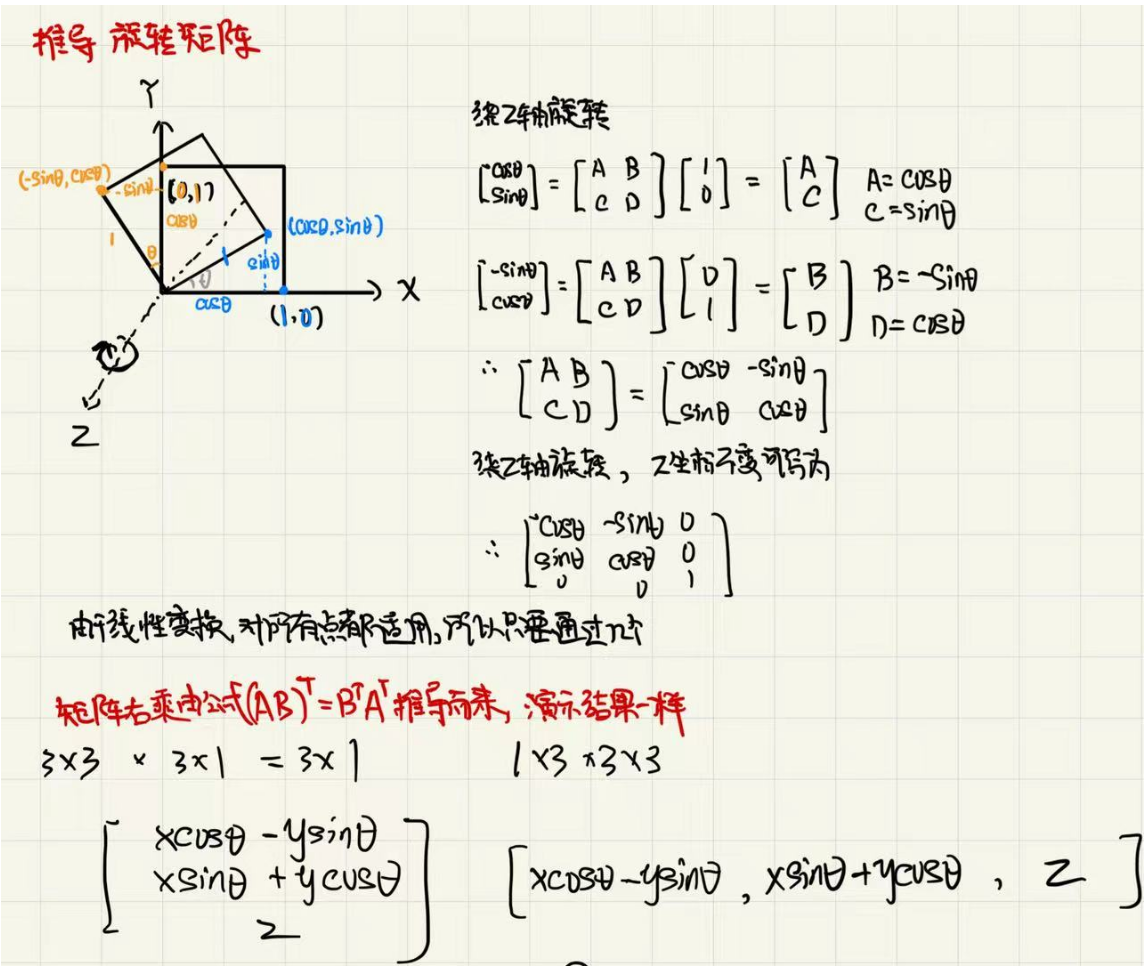 推导 旋转矩阵
Y
(-sinθ, cosθ)
-sinθ
(0,1)
cosθ
1
θ
(cosθ, sinθ)
1
sinθ
θ
cosθ
(1,0)
X
Z
绕Z轴旋转
[cosθ sinθ] = [A B C D] [1 0] = [A C] A=cosθ C=sinθ
[-sinθ cosθ] = [A B C D] [0 1] = [B D] B=-sinθ D=cosθ
∴ [A B C D] = [cosθ -sinθ sinθ cosθ]
绕Z轴旋转, Z坐标不变可写为
∴ [cosθ -sinθ 0 sinθ cosθ 0 0 0 1]
由于线性变换,对所有点都适用,所以只要通过几个
矩阵右乘由公式(AB)ᵀ=BᵀAᵀ推导而来, 演示结果一样
3×3 × 3×1 = 3×1
1×3 ×3×3
[xcosθ -ysinθ
xsinθ +ycosθ
Z]
[xcosθ-ysinθ, xsinθ+ycosθ, Z]